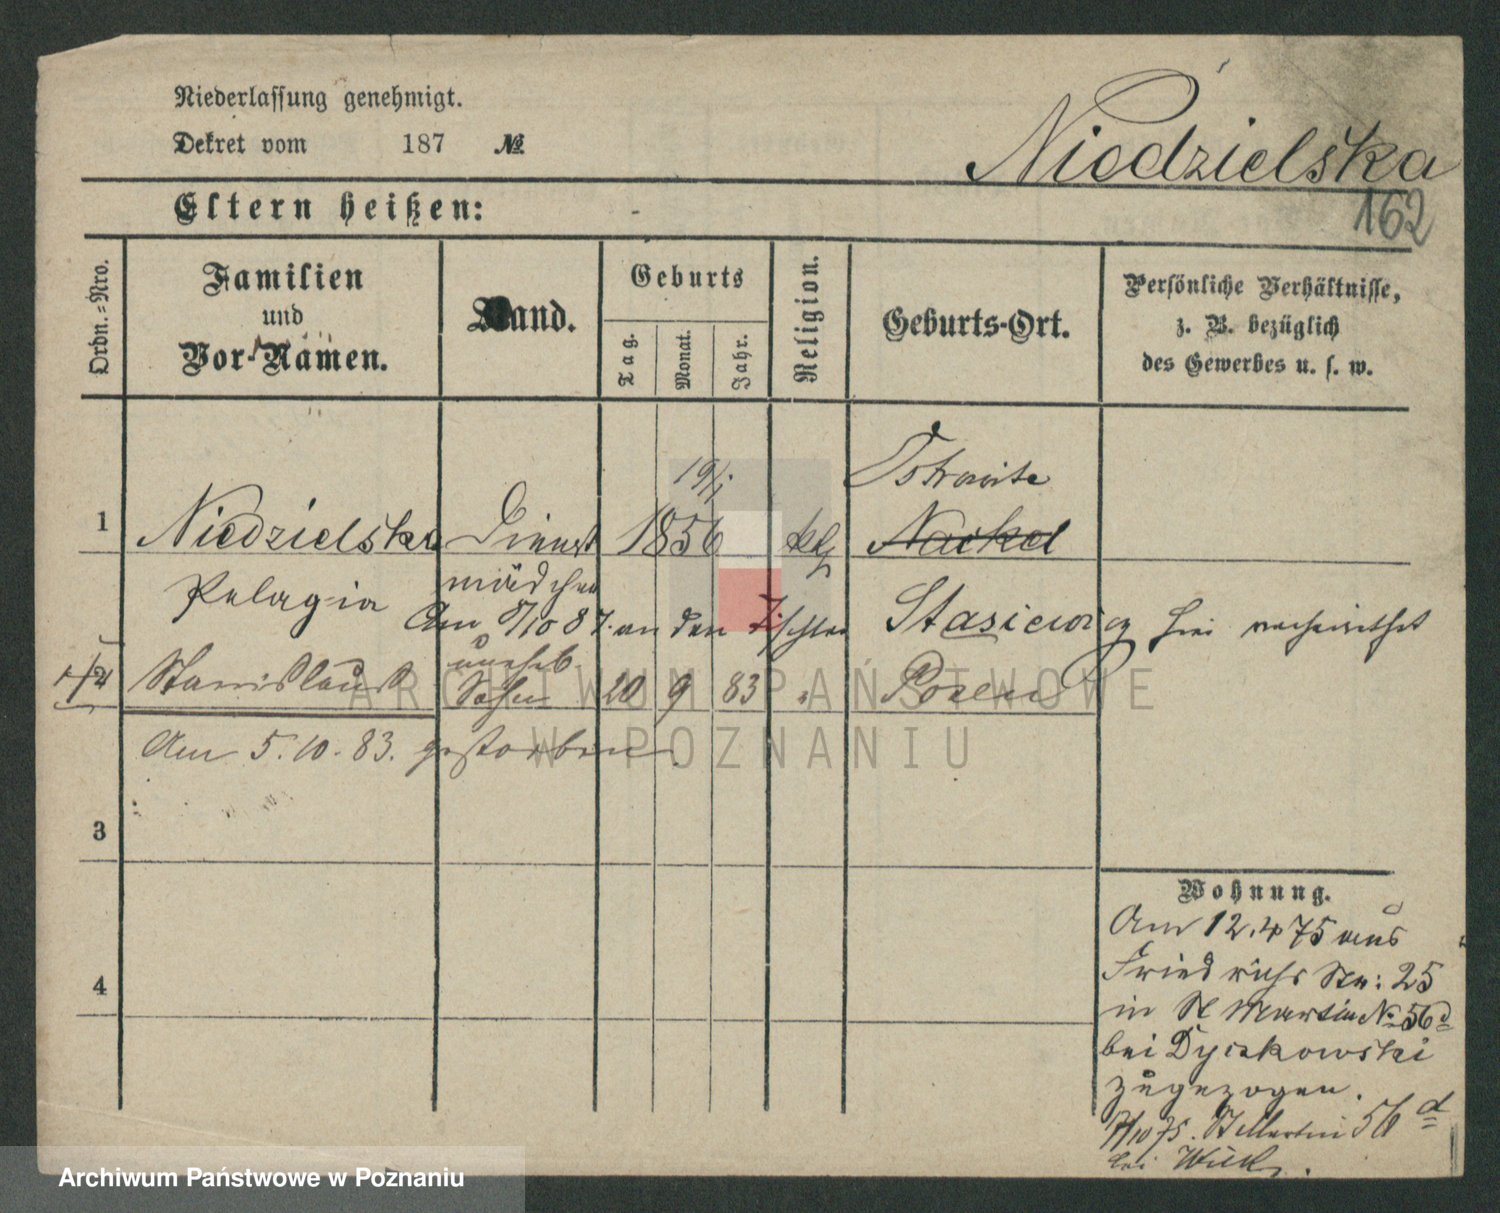 Niederlassung genehmigt.
Dekret vom 187 №
Niedzielska
162
Eltern heißen:
Ordn.-Nro.
Familien und Vor-Namen.
Stand.
Geburts
Tag.
Monat.
Jahr.
Religion.
Geburts-Ort.
Persönliche Verhältnisse,
z. B. bezüglich
des Gewerbes u. s. w.
19/1
Ostrowite
1 Niedzielska Dienst 1856 kth Nackel
Pelagia mädchen
Am 8/10 87 an den Tischler Stasiewicz hier verheirathet
unehl.
2 Stanislaus Sohn 20 9 83 " Posen
Am 5.10.83. gestorben.
3
4
Wohnung.
Am 12.4 75 aus
Friedrichs Str: 25
in St Martin No 56d
bei Dyczkowski
zugezogen.
/10 75. St Martin 56 d
bei
ARCHIWUM PAŃSTWOWE
W POZNANIU
Archiwum Państwowe w Poznaniu